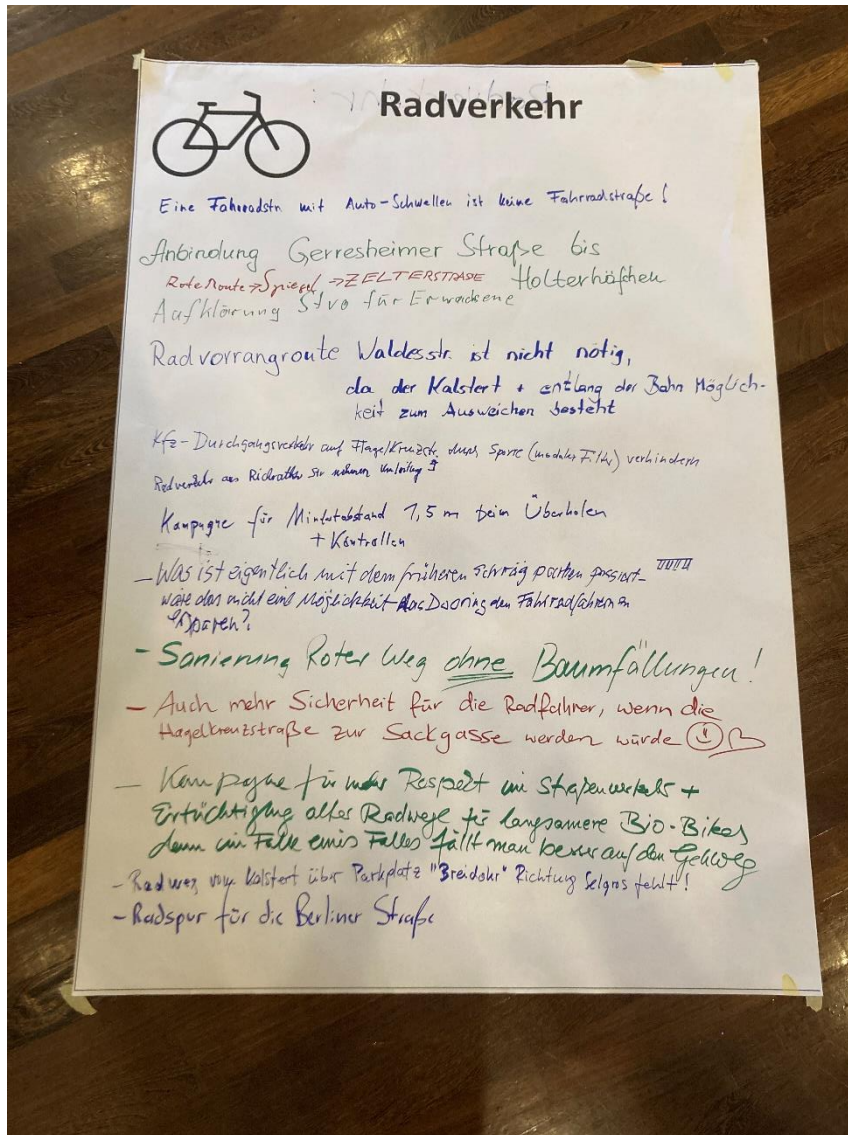 Radverkehr
Eine Fahrradstr mit Auto-Schwellen ist keine Fahrradstraße!
Anbindung Gerresheimer Straße bis
Rote Route → Spiegel → ZELTERSTRAßE Holterhöfchen
Aufklärung Stvo für Erwachsene
Radvorrangroute Waldesstr. ist nicht nötig,
da der Kalstert + entlang der Bahn Möglich-
keit zum Ausweichen besteht
Kfz-Durchgangsverkehr auf Hagelkreuzstr. durch Sperre (modaler Filter) verhindern
Radverkehr aus Richrather Str nehmen
Kampagne für Mindestabstand 1,5 m beim Überholen
+ Kontrollen
- Was ist eigentlich mit dem früheren Schräg parken passiert -
wäre das nicht eine Möglichkeit das Dooring den Fahrradfahrern
ersparen?
- Sanierung Roter Weg ohne Baumfällungen!
- Auch mehr Sicherheit für die Radfahrer, wenn die
Hagelkreuzstraße zur Sackgasse werden würde
- Kampagne für mehr Respekt im Straßenverkehr +
Ertüchtigung alter Radwege für langsamere Bio-Bikes
denn im Falle eines Falles fällt man besser auf den Gehweg
- Radweg vom Kalstert über Parkplatz "Breidohr" Richtung Selgros fehlt!
- Radspur für die Berliner Straße